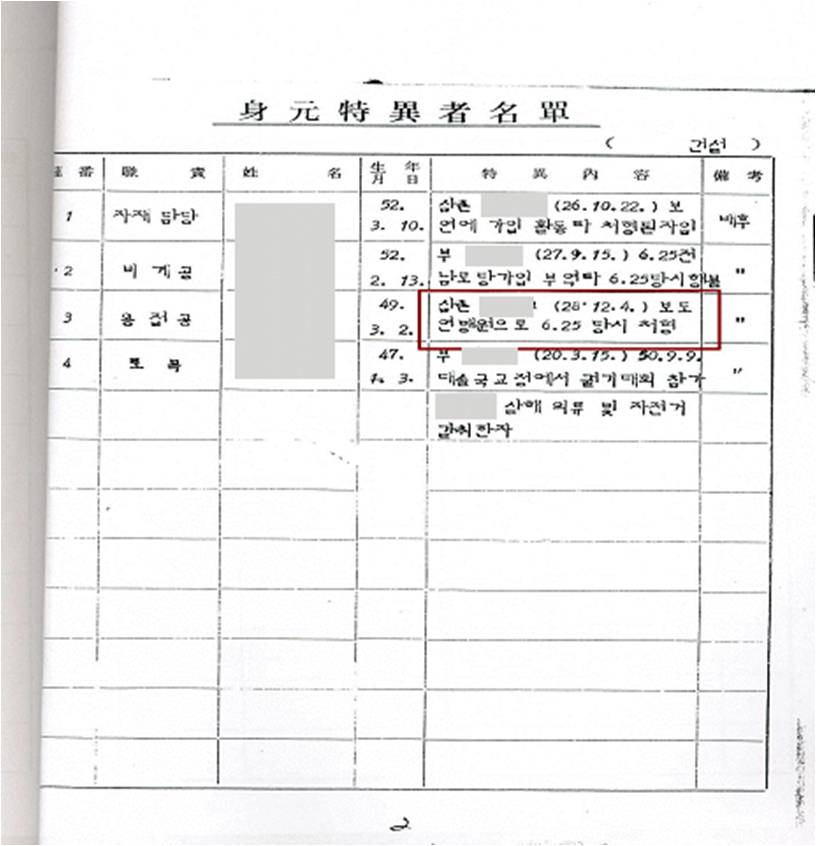 身元特異者名單
( 건설 )
番 職責 姓名 生年月日 特異內容 備考
1 자재 담당 52. 3. 10. 삼촌 (26.10.22.) 보
연에 가입 활동타 처형된자임 배후
2 비계공 52. 2. 13. 부 (27.9.15.) 6.25전
남로당가입 부역타 6.25당시행불 "
3 용접공 49. 3. 2. 삼촌 (28.12.4.) 보도
연맹원으로 6.25 당시 처형 "
4 토목 47. 3. 부 (20.3.15.) 50.9.9.
국교정에서 궐기대회 참가 "
살해 의류 및 자전거
갈취한자
2